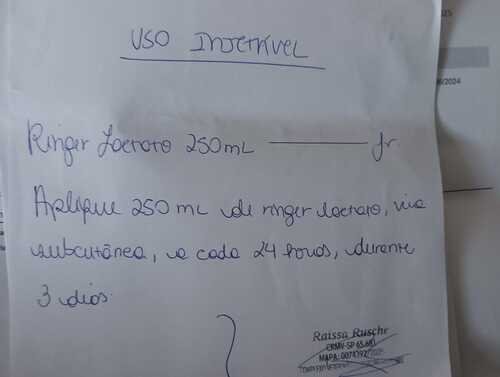 USO INJETÁVEL
Ringer Lactato 250mL ———— fr.
Aplique 250 mL de ringer lactato, via
subcutânea, a cada 24 horas, durante
3 dias.
Raissa Ruschr
CRMV-SP 65.681
MAPA:
/2024